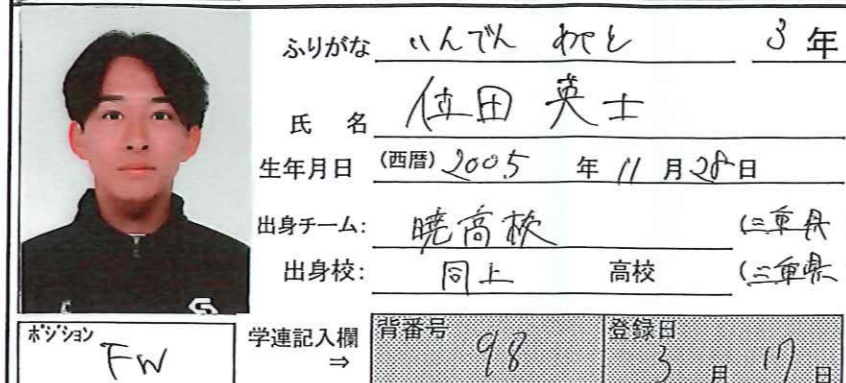 ふりがな いんでん 3年
氏名 田 英士
生年月日 (西暦) 2005年 11月 28日
出身チーム: 暁高校 (三重県
出身校: 同上 高校 (三重県
ポジション FW
学連記入欄 ⇒ 背番号 98 登録日 3月 17日